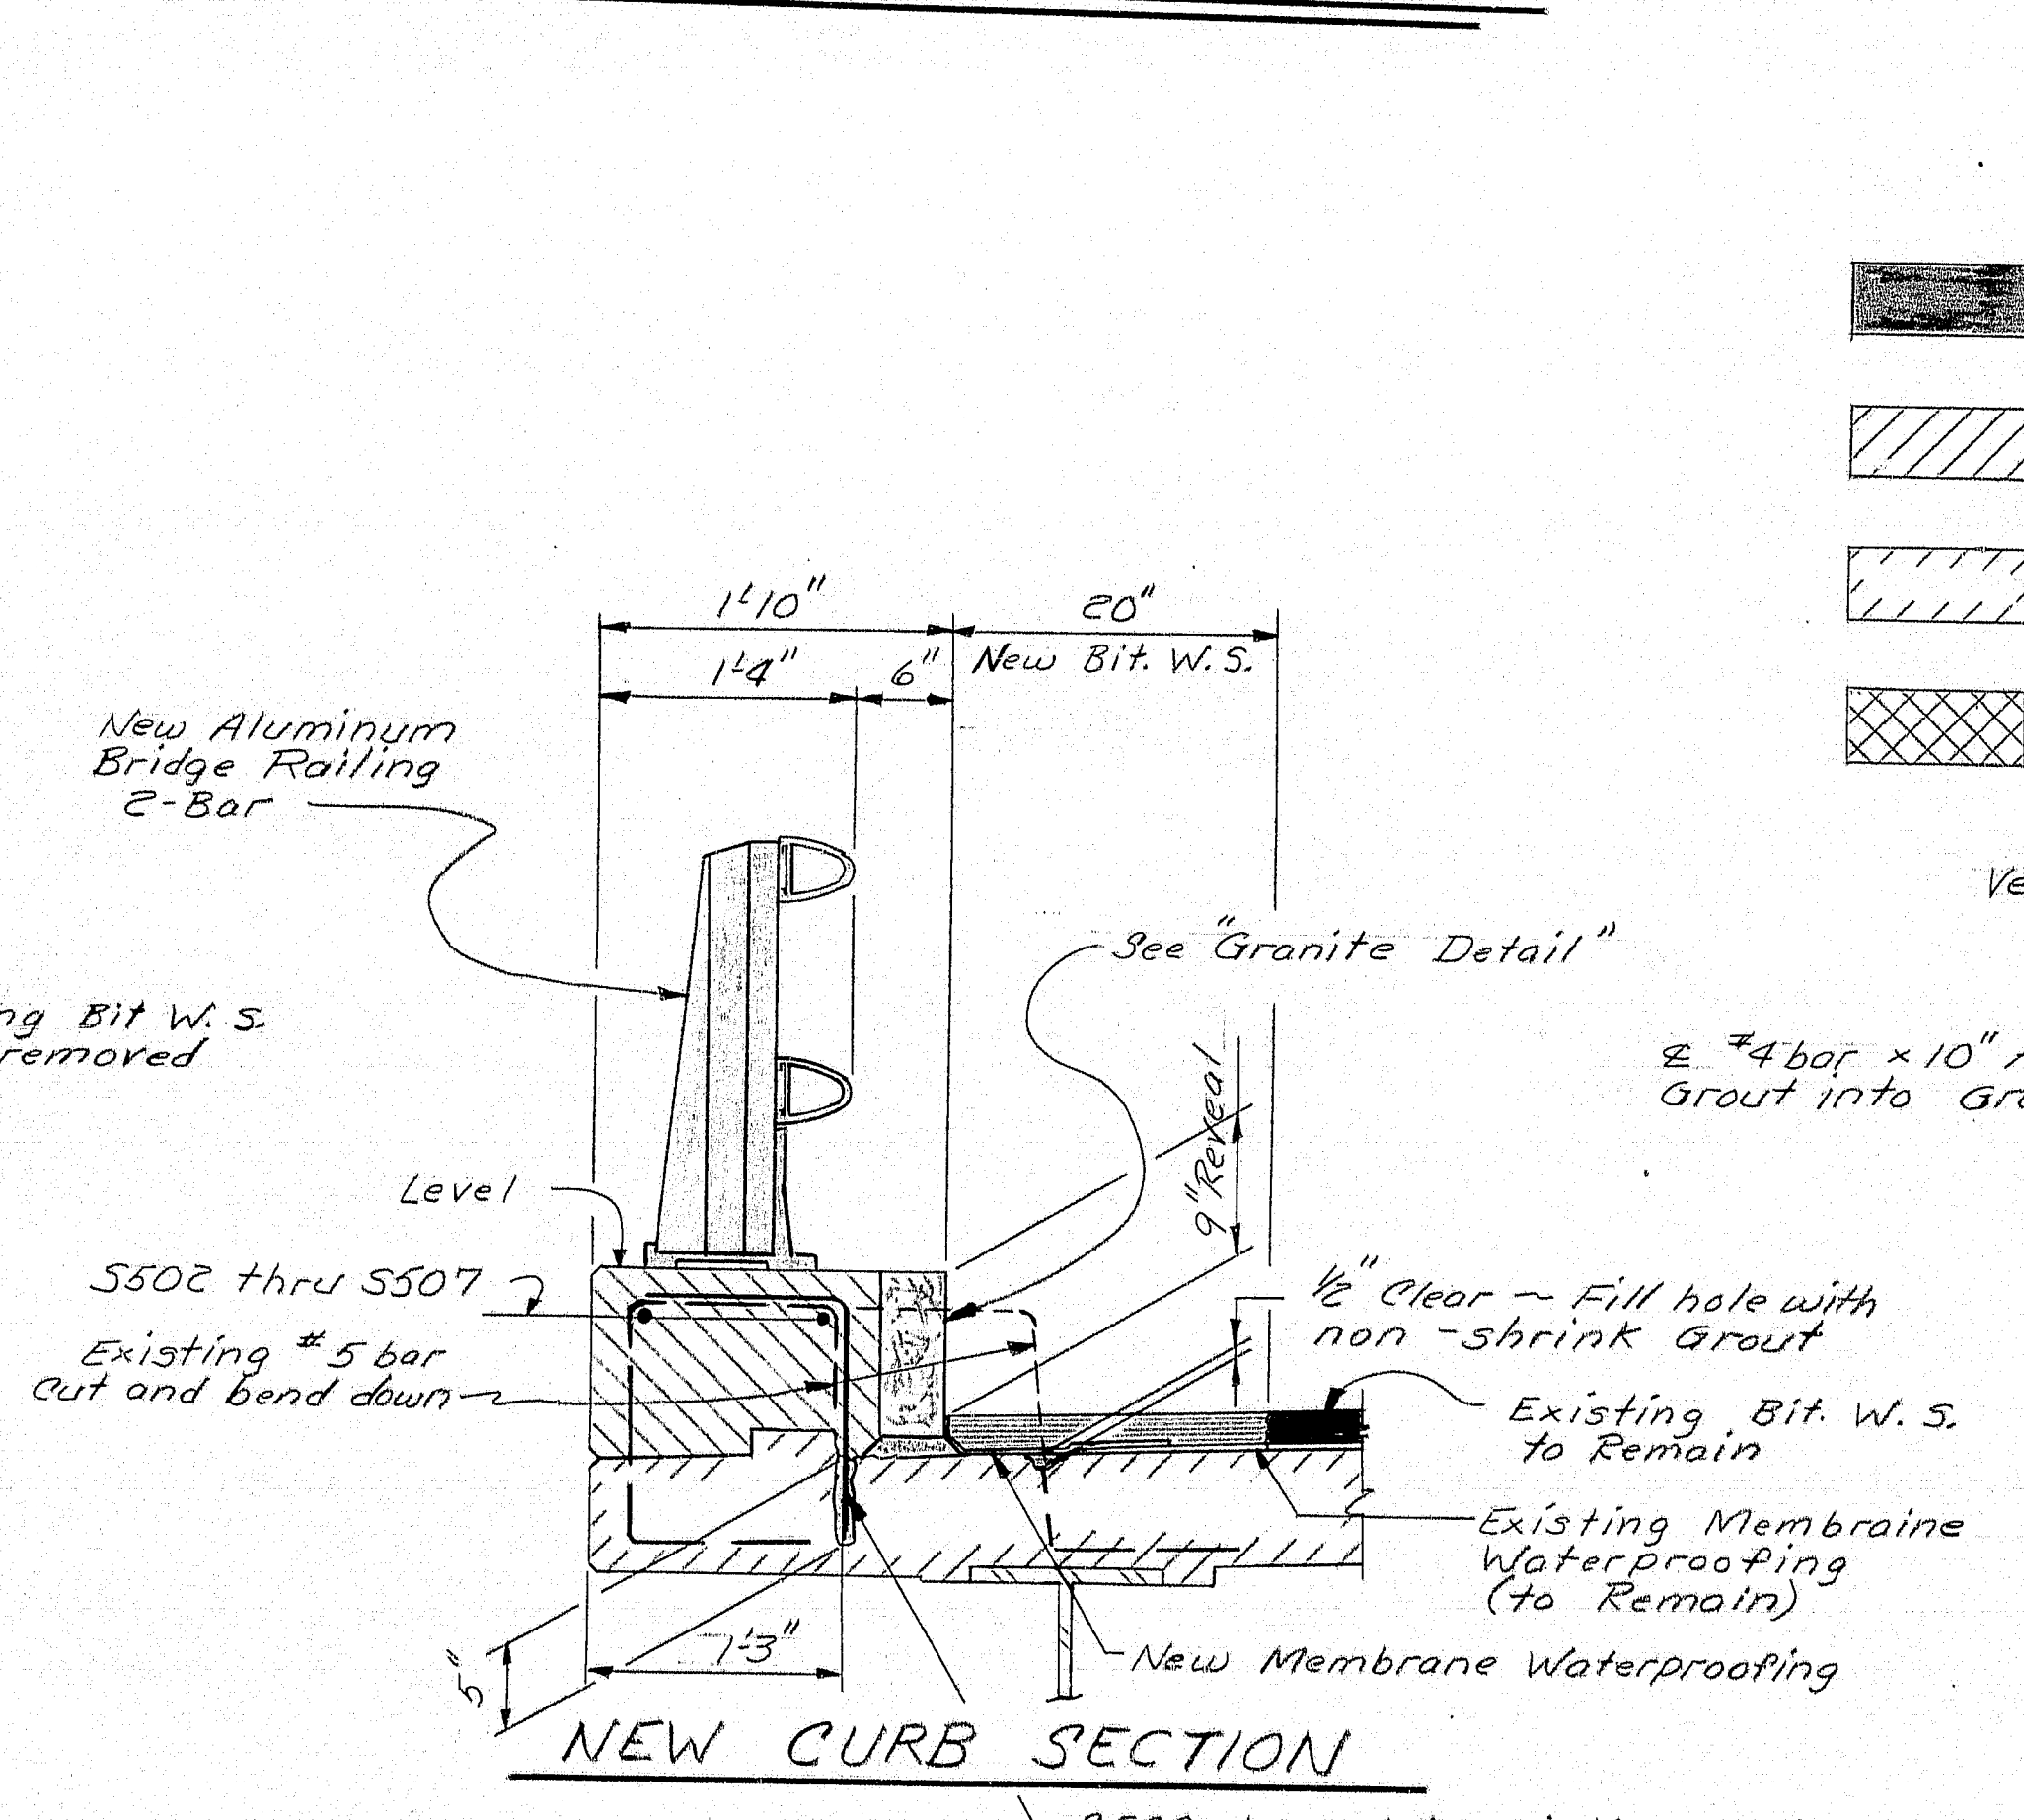 1'-10"
20"
1'-4"
6"
New Bit. W.S.
New Aluminum
Bridge Railing
2-Bar
See "Granite Detail"
Bit W.S.
removed
9" Reveal
₵ #4 bar x 10"
Grout into
Level
S502 thru S507
Existing #5 bar
Cut and bend down
1/2" Clear ~ Fill hole with
non-shrink Grout
Existing Bit. W.S.
to Remain
Existing Membraine
Waterproofing
(to Remain)
New Membrane Waterproofing
1'-3"
5"
NEW CURB SECTION